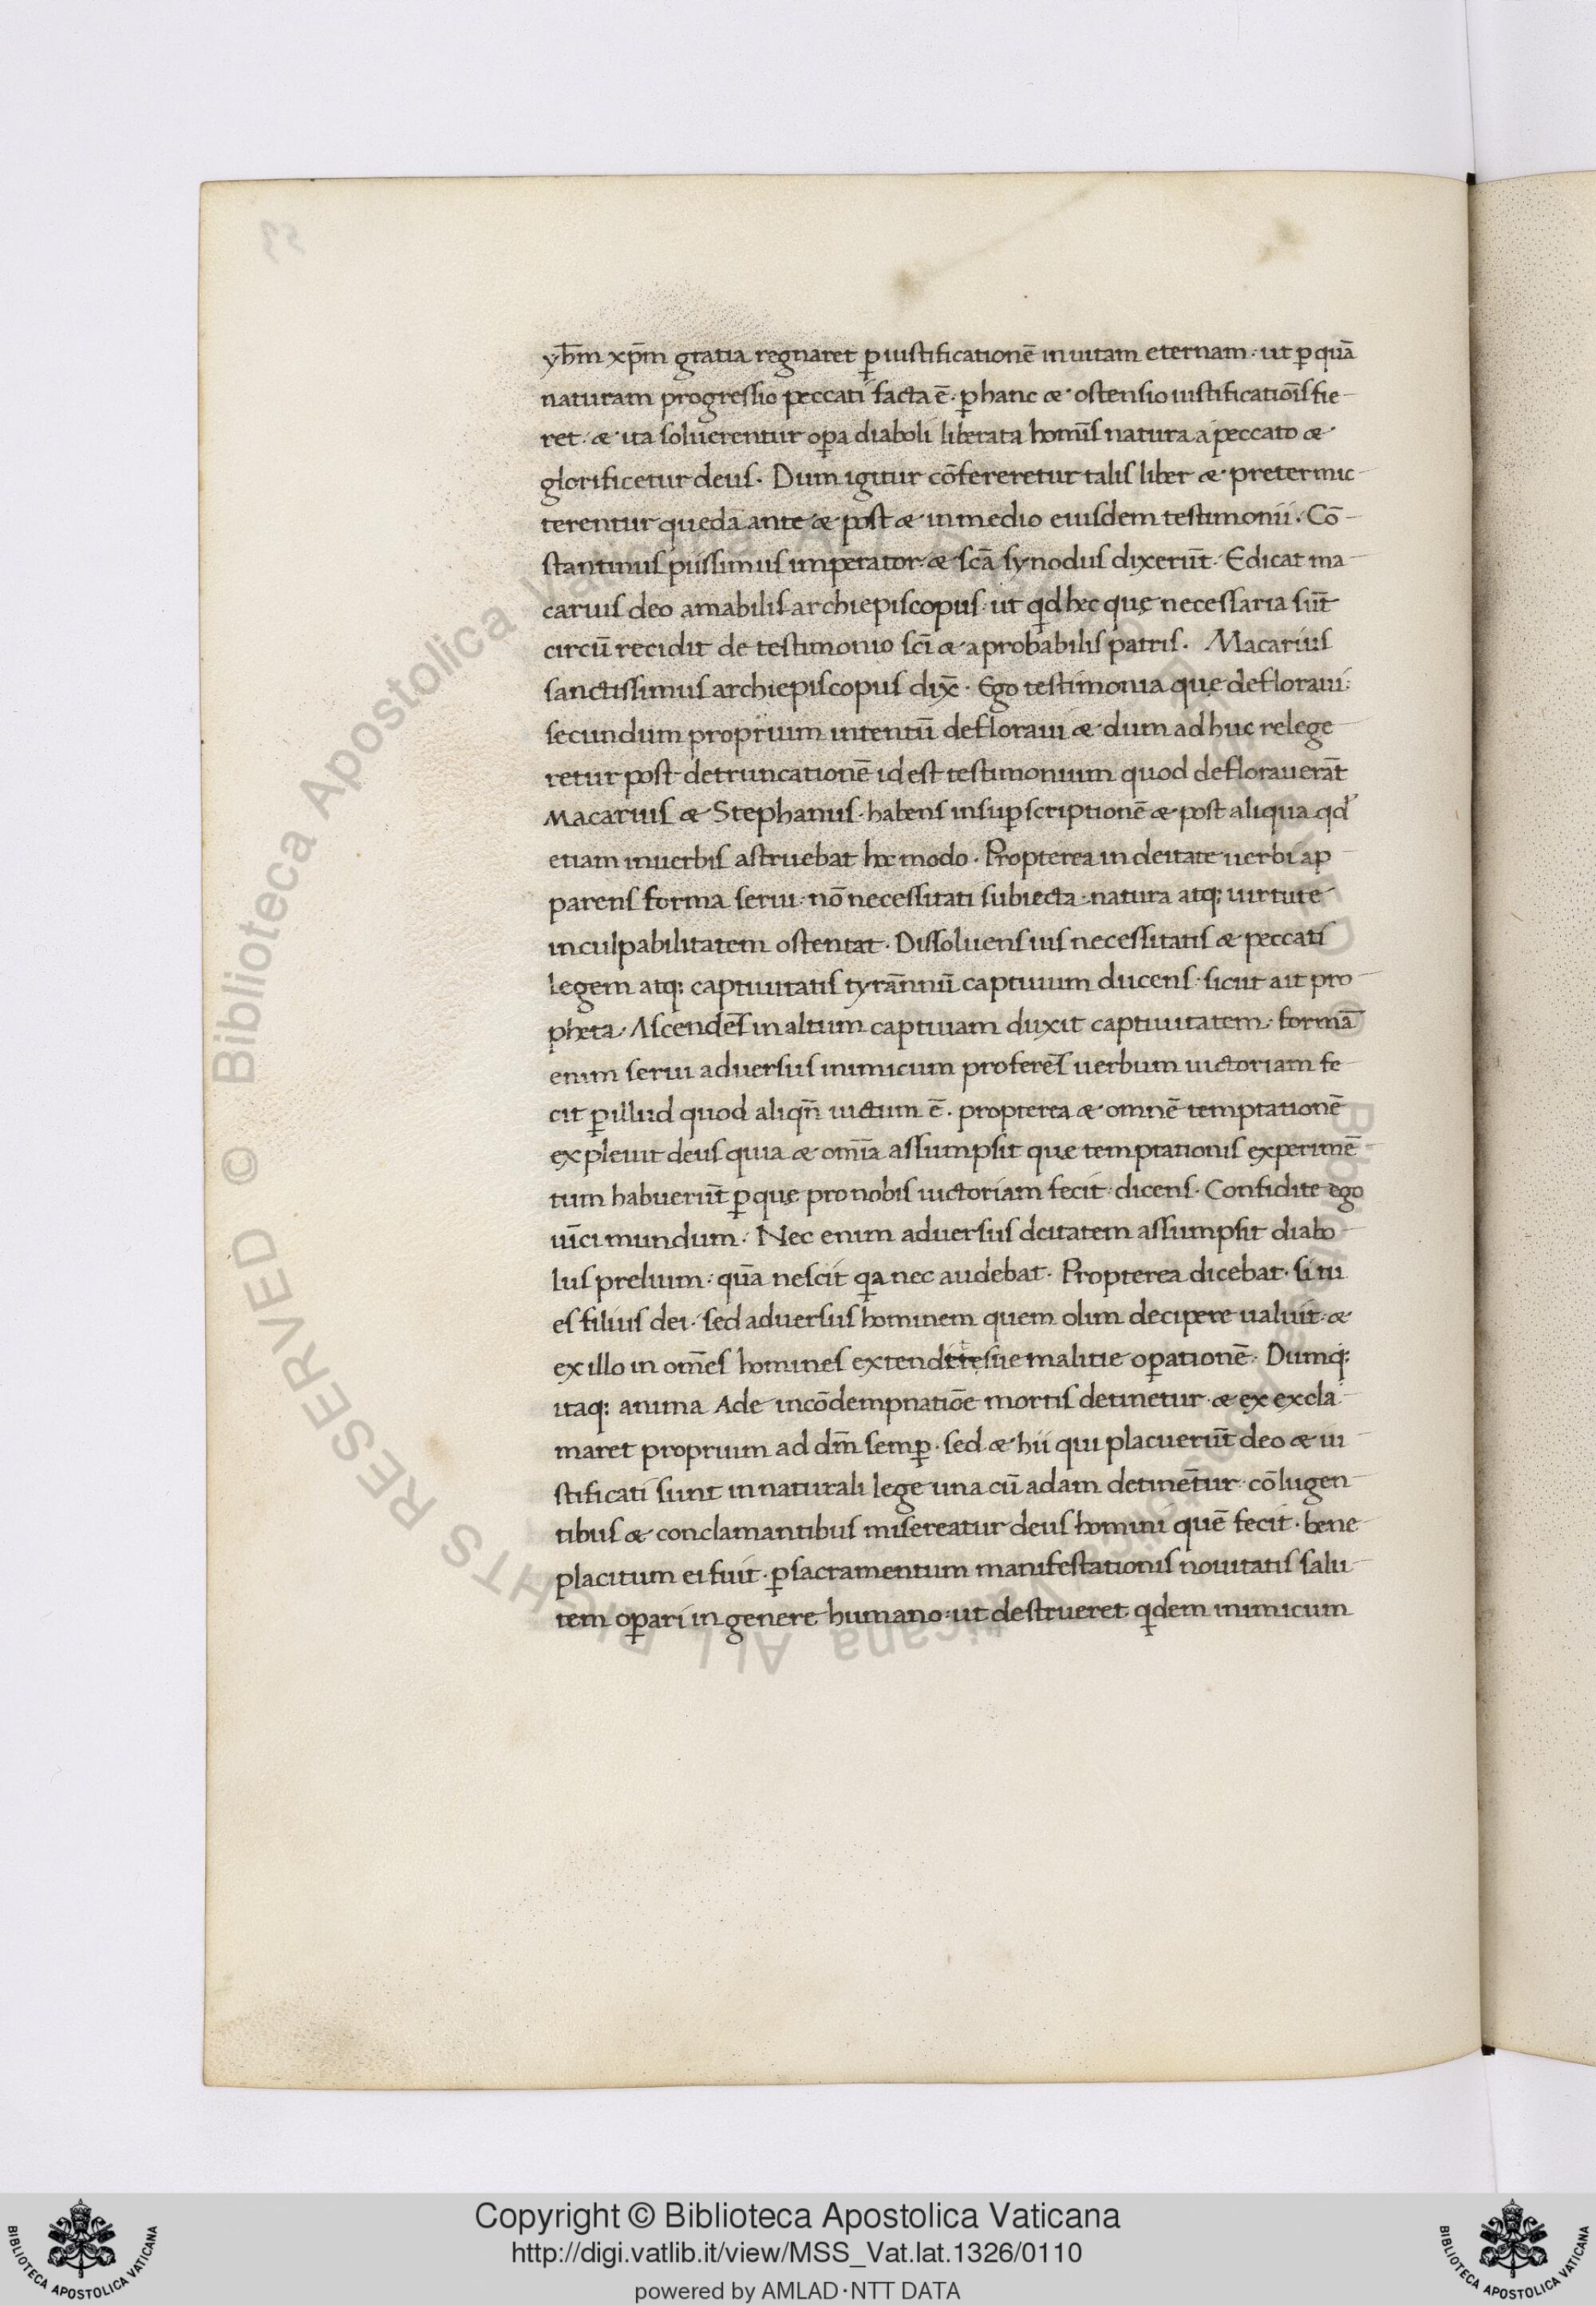 yh̄m xp̄m gratia regnaret ꝑ iustificationē in uitam eternam · ut ꝑ quā
naturam progressio peccati facta ē · ꝑ hanc & ostensio iustificatiōis fie-
ret · & ita soluerentur oꝑa diaboli liberata homīs natura a peccato &
glorificetur deus · Dum igitur cōfereretur talis liber & pretermic-
terentur quedā ante & post & in medio eiusdem testimonii · Cō-
stantinus piissimus imperator · & scā synodus dixerūt · Edicat ma-
carius deo amabilis archiepiscopus · ut qd hec quę necessaria sūt
circū recidit de testimonio scī & aprobabilis patris · Macarius
sanctissimus archiepiscopus dix̄ · Ego testimonia quę defloraui ·
secundum proprium intentū defloraui & dum ad huc relege-
retur post detruncationē id est testimonium quod deflorauerāt
Macarius & Stephanus · habens insuꝑscriptionē & post aliqua qd
etiam in uerbis astruebat hoc modo · Propterea in deitate uerbi ap-
parens forma serui · nō necessitati subiecta · natura atq; uirtute
inculpabilitatem ostentat · Dissoluens uis necessitatis & peccati
legem atq; captiuitatis tyrānnū captiuum ducens · sicut ait pro-
pheta · Ascendēs in altum captiuam duxit captiuitatem · formā
enim serui aduersus inimicum proferēs uerbum uictoriam fe-
cit ꝑ illud quod aliqn̄ uictum ē · propterea & omnē temptationē
expleuit deus quia & omīa assumpsit quę temptationis experimē-
tum habuerūt ꝑ quę pro nobis uictoriam fecit · dicens · Confidite ego
uīci mundum · Nec enim aduersus deitatem assumpsit diabo-
lus prelium · quā nescit qa nec audebat · Propterea dicebat · si tu
es filius dei · sed aduersus hominem quem olim decipere ualuit · &
ex illo in om̄es homines extendere suę malitie oꝑationē · Dumq;
itaq; anima Ade in cōdempnatiōe mortis detinetur · & ex excla-
maret proprium ad dm̄ semꝑ · sed & hii qui placuerūt deo & iu-
stificati sunt in naturali lege una cū adam detinētur · cō lugen-
tibus & conclamantibus misereatur deus homini quē fecit · bene-
placitum ei fuit · ꝑ sacramentum manifestationis nouitatis salu-
tem oꝑari in genere humano · ut destrueret qdem inimicum
Copyright © Biblioteca Apostolica Vaticana
http://digi.vatlib.it/view/MSS_Vat.lat.1326/0110
powered by AMLAD·NTT DATA